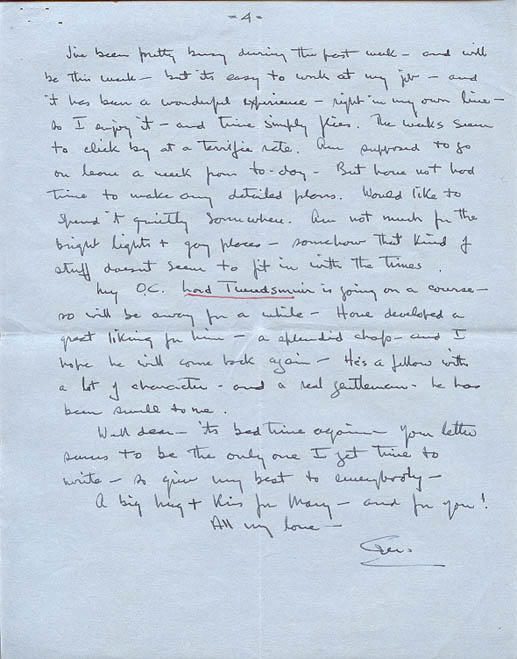 - 4 -
I've been pretty busy during the past week - and will
be this week - but its easy to work at my job - and
it has been a wonderful experience - right in my own line -
so I enjoy it - and time simply flies. The weeks seem
to click by at a terrific rate. Am supposed to go
on leave a week from to-day - But have not had
time to make any detailed plans. Would like to
spend it quietly somewhere. Am not much for the
bright lights + gay places - somehow that kind of
stuff doesnt seem to fit in with the times.
My O.C. Lord Tweedsmuir is going on a course -
so will be away for a while - Have developed a
great liking for him - a splendid chap - and I
hope he will come back again - He's a fellow with
a lot of character - and a real gentleman - he has
been swell to me.
Well dear - its bed time again - your letter
seems to be the only one I get time to
write - so give my best to everybody -
A big hug + kiss for Mary - and for you!
All my love -